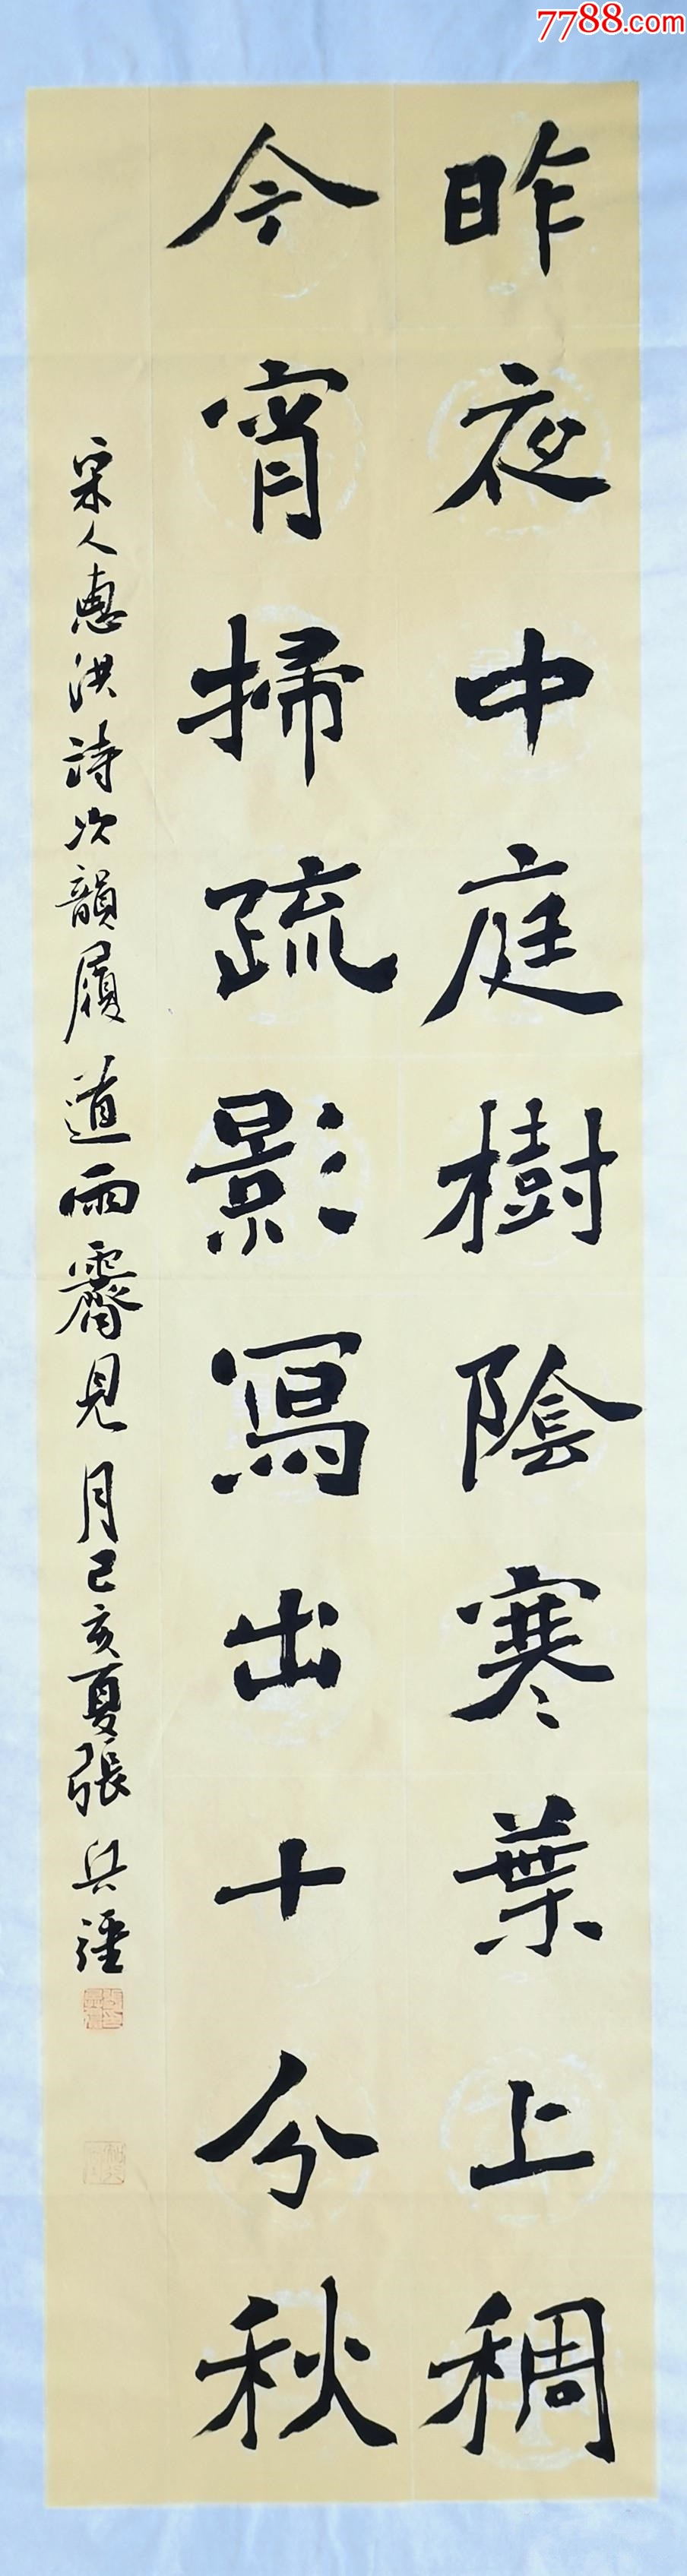 7788.com
昨夜中庭樹陰寒葉上稠
今宵掃疏影寫出十分秋
宋人惠洪詩次韻履道雨霽見月己亥夏張兵